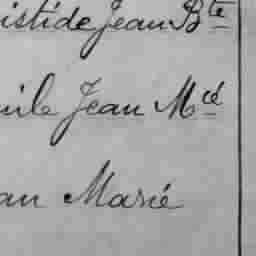 istide Jean Bte
mile Jean Mcé
an Marié